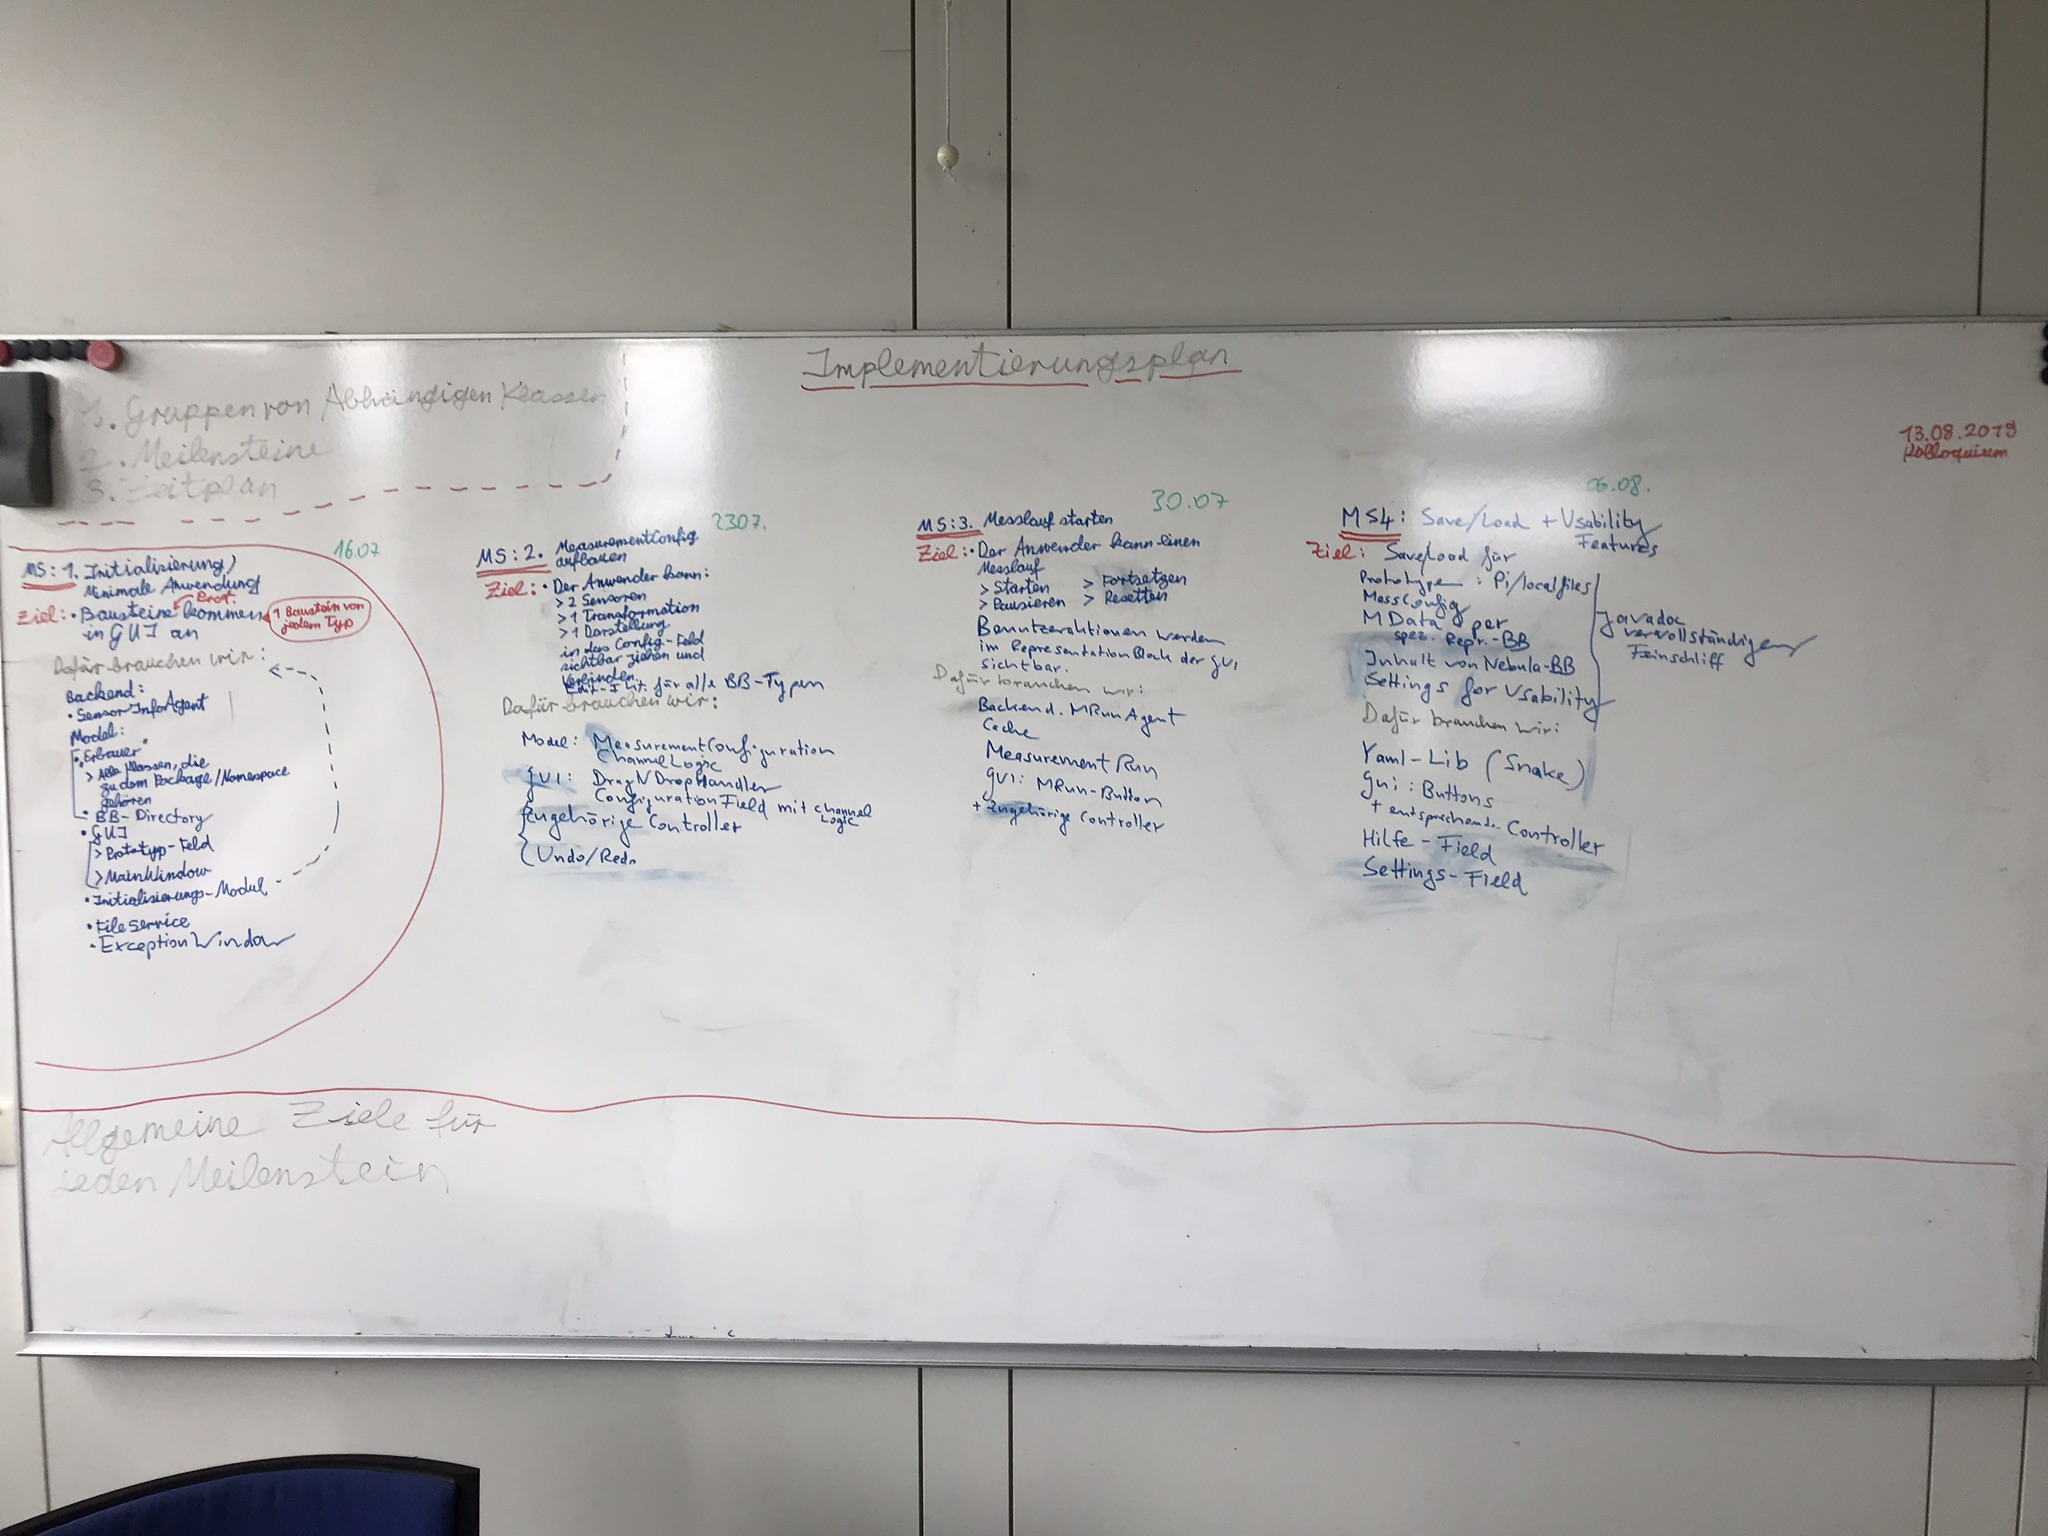 Implementierungsplan
1. Gruppen von Abhängigen Klassen
2. Meilensteine
3. Zeitplan
13.08.2019
Kolloquium
16.07
MS: 1. Initialisierung/
Minimale Anwendung
Ziel: • Bausteine kommen
Prot.
1 Baustein von
jedem Typ
in GUI an
Dafür brauchen wir:
Backend:
• SensorInfoAgent
Model:
• "Erbauer"
> Alle Klassen, die
zu dem Package/Namespace
gehören
• BB-Directory
• GUI
> Prototyp-Feld
> MainWindow
• Initialisierungs-Modul
• FileService
• ExceptionWindow
2307.
MS: 2. MeasurementConfig
aufbauen
Ziel: • Der Anwender kann:
> 2 Sensoren
> 1 Transformation
> 1 Darstellung
in das Config-Feld
sichtbar ziehen und
verbinden
für alle BB-Typen
Dafür brauchen wir:
Model: MeasurementConfiguration
ChannelLogic
GUI: DragNDropHandler
ConfigurationField mit Channel
Logic
Zugehörige Controller
Undo/Redo
30.07
MS: 3. Messlauf starten
Ziel: • Der Anwender kann einen
Messlauf
> Starten > Fortsetzen
> Pausieren > Resetten
Benutzeraktionen werden
im RepresentationBlock der GUI
sichtbar.
Dafür brauchen wir:
Backend. MRunAgent
Cache
Measurement Run
GUI: MRun-Button
+ Zugehörige Controller
06.08.
MS4: Save/Load + Usability
Features
Ziel: Save/Load für
Prototype : Pi/localfiles
MessConfig
MData per
spez. Repr.-BB
Inhalt von Nebula-BB
Settings for Usability
Javadoc
vervollständigen
Feinschliff
Dafür brauchen wir:
Yaml-Lib (Snake)
Gui: Buttons
+ entsprechende Controller
Hilfe-Field
Settings-Field
Allgemeine Ziele für
jeden Meilenstein